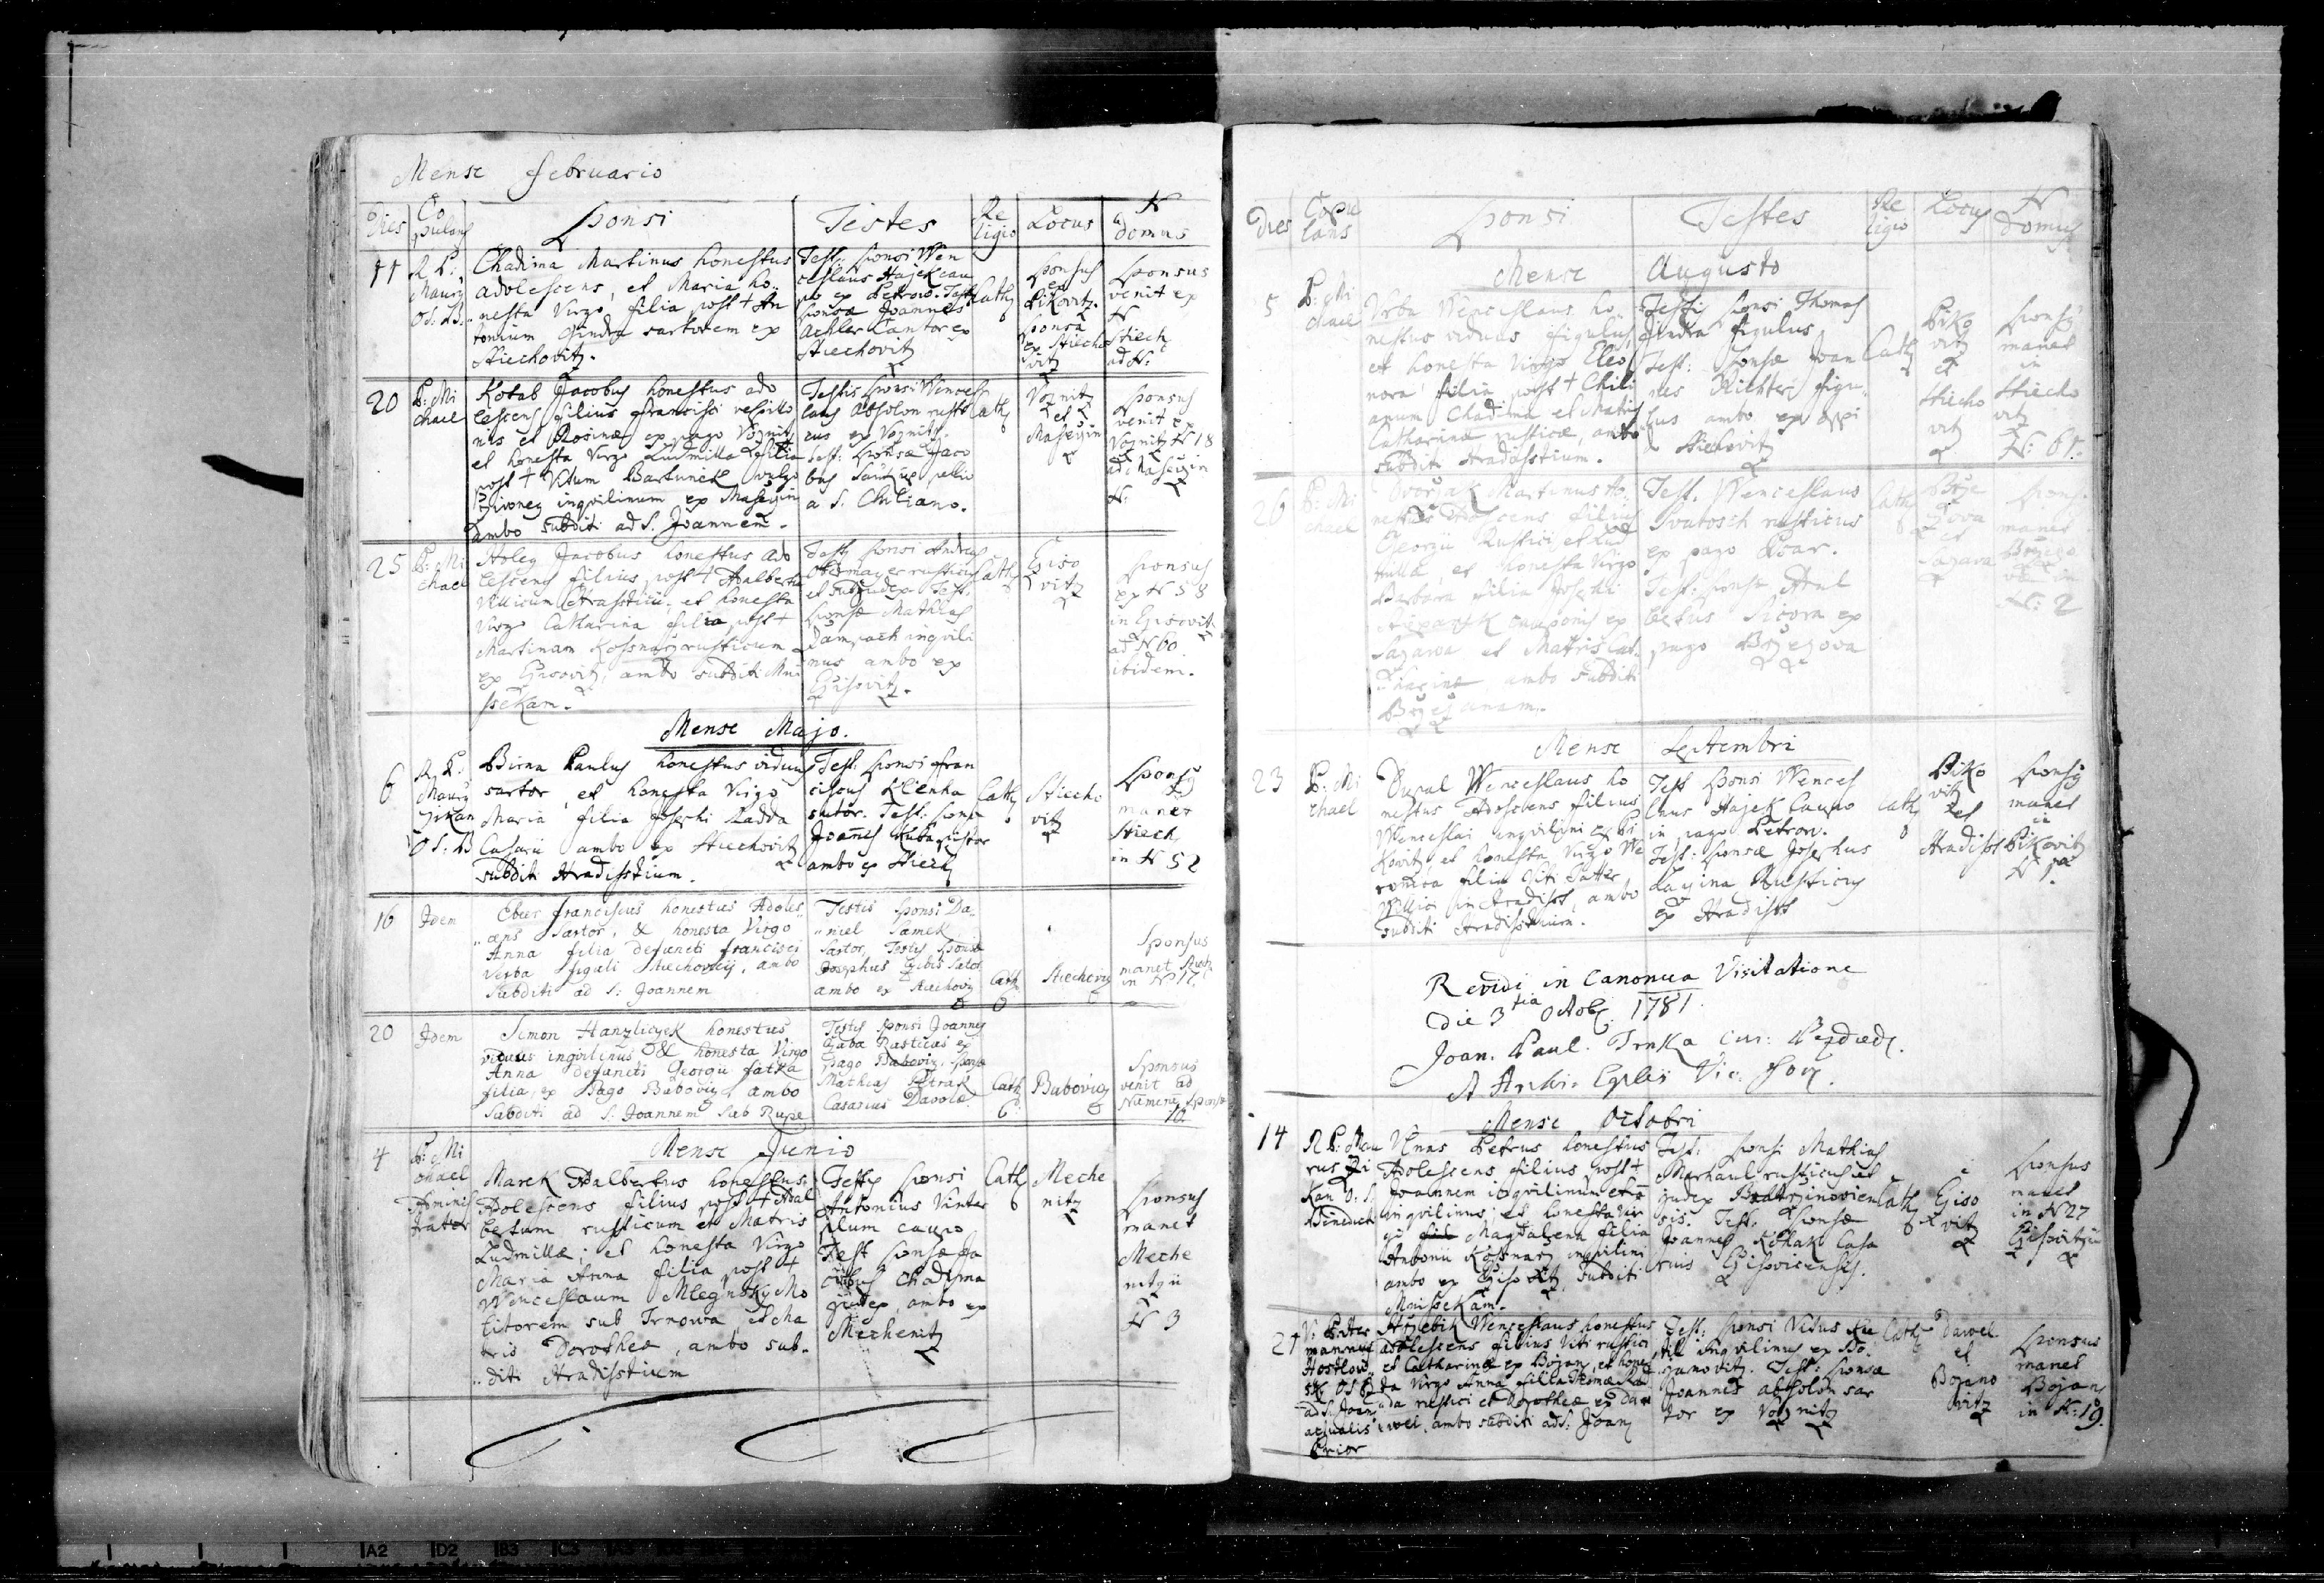 Mense februario
Dies
Co
pulans
Sponsi
Testes
Re
ligio
Locus
N
domus
11
R P:
Maury
O S. B.
Chadima Martinus honestus
adolescens, et Maria ho..
nesta Virgo filia post + An
tonium Gindra sartorem ex
Stiechovitz.
Test: sponsi Wen
ceslaus Hajek cau
po ex Petrow. Test:
sponsæ Joannes
Achler Cantor ex
Stiechovitz
Cath
Sponsus
ex
Pikovitz.
Sponsa
ex Stiecho
vitz
Sponsus
venit ex
N
Stiech
ad N:
20
P: Mi
chael
Kotab Jacobus honestus ado
lescens filius francisci
et Rosinæ ex pago Voznitz
et honesta Virgo Ludmilla filia
post + Vitum Bartunek vulgo
inqvilinum ex Masezin
ambo subditi ad S. Joannem.
Testis sponsi Wences
laus Absolon rusti
cus ex Voznitz.
Test: Sponsæ Jaco
bus
a S. Chiliano.
Cath
Voznitz
et
Masezin
Sponsus
venit ex
Voznitz N 18
ad Masezin
N:
25
P: Mi
chael
Holeg Jacobus honestus ado
lescens filius post + Adalbertum
Villicum Hrassticii, et honesta
Virgo Catharina filia post +
Martinum Kossnarz rusticum
ex Gisovitz, ambo subditi Mni
ssekam.
Testis sponsi Andreas
Obermayer rusticus
et subjudex Test.
sponsæ Mathias
inqvili
nus ambo ex
Gisovitz.
Cath
Giso
vitz
Sponsus
ex N 58
in Gisovitz
ad N 60.
ibidem.
Mense Majo.
6
R P:
Maury
Jirkan
O S: B
Birna Paulus honestus viduus
sartor, et honesta Virgo
Maria filia Josephi Ladda
Casarii ambo ex Stiechovitz
subditi Hradisstium.
Test: sponsi fran
ciscus Klenka
sutor. Test: spons
Joannes Kuba pistor
ambo ex Stiech
Cath
Stiecho
vitz
Sponsus
manet
Stiech
in N 52
16
Idem
Eber franciscus honestus Adoles
cens Sartor, & honesta Virgo
Anna filia defuncti francisci
Verba figuli Stiechovicij, ambo
Subditi ad S: Joannem
Testis sponsi Da
niel Samek
Sartor, Testis sponsæ
Josephus
ambo ex Stiechoviz
Cath
Stiechoviz
Sponsus
manet Stiech
in N 17.
20
Idem
Simon Hanzliczek honestus
viduus inqvilinus & honesta Virgo
Anna defuncti Georgii fatka
filia, ex Pago Buboviz, ambo
Subditi ad S: Joannem Sub Rupe
Testis sponsi Joannes
Gaba Rusticus ex
Pago Buboviz, sponsæ
Mathias Petrak
Casarius Davole.
Cath
Bubovicz
Sponsus
venit ad
Numerum Sponsæ
10.
Mense Junio
4
P: Mi
chael
Adminis
trator
Marek Adalbertus honestus
Adolescens filius post + Adal
bertum rusticum et Matris
Ludmillæ; et honesta Virgo
Maria Anna filia post +
Wenceslaum Mlegnsky Mo
litorem sub Trnowa, et Ma
tris Dorotheæ, ambo sub
diti Hradisstium
Testis sponsi
Antonius Vinter
plum caupo
Test sponsæ Ja
cobus Chadima
judex, ambo ex
Mechenitz
Cath
Meche
nitz
Sponsus
manet
Meche
nitzii
N 3
Dies
Copu
lans
Sponsi
Testes
Re
ligio
Locus
N
Domus
Mense Augusto
5
P: Mi
chael
Vrba Wenceslaus ho
nestus viduus figulus,
et honesta Virgo Eleo
nora filia post + Chili
anum Cladima et Matris
Catharinæ rusticæ, ambo
subditi Hradisstium.
Testis sponsi Thomas
Jindra figulus
Test: Sponsæ Joan
nes Richter figu
lus ambo ex oppi
Stiechovitz
Cath
Piko
vitz
et
Stiecho
vitz
Sponsus
manet
in
Stiecho
vitz
N: 61.
26
P: Mi
chael
Dvorzak Martinus ho
nestus Adolescens filius
Georgii Rustici et Lud
millæ, et honesta Virgo
Barbara filia Josephi
cauponis ex
Sazawa et Matris Cat
tharinæ ambo subditi
Test. Wenceslaus
Svatosch rusticus
ex pago Psar.
Test: sponsæ Adal
bertus Sicora ex
pago Brzezova
Cath
Brze
zova
et
Sazava
Sponsus
manet
Brzezo
væ in
N: 2
Mense Septembri
23
P: Mi
chael
Duxal Wenceslaus ho
nestus Adolescens filius
Wenceslai inqvilini ex Pi
kovitz et honesta Virgo Ve
ronica filia Viti
Villici in Hradisst, ambo
subditi Hradisstium.
Test sponsi Wences
laus Hajek Caupo
in pago Petrow.
Test: sponsæ Josephus
Lagina Rusticus
ex Hradisst
Cath
Piko
vitz
et
Hradisst
Sponsus
manet
in
Pikovitz
N 1.
Revidi in Canonica Visitatione
die 3tia Octob. 1781.
Joan. Paul. Trnka Cur:
A Archi-Eppalis Vic: for.
Mense Octobri
14
R P: Mau
rus Zi
kan O: S.
Benedicti
Vnas Petrus honestus
Adolescens filius post +
Joannem inqvilinum et
inqvilinus; et honesta Vir
go Magdalena filia
Antonii Kossnarz inqvilini
ambo ex Gisovitz subditi
Mnissekam.
Test: sponsi Mathias
Markaul rusticus et
judex Bratrzinovien
sis. Test: sponsæ
Joannes Kohak Casa
rius Gisovicensis.
Cath
Giso
vitz
Sponsus
manet
in N 27
Gisovitzii
21
V: Pater
manus
Hostlow
sky O S B
ad S: Joan
actualis
Prior
Hrzebik Wenceslaus honestus
adolescens filius Viti rustici
et Catharinæ ex Bojan, et hones
ta Virgo Anna filia Thomæ
rustici et Dorotheæ ex Da
wel, ambo subditi ad S: Joan
Test: sponsi Vitus Ku
inqvilinus ex Bo
janovitz. Test: sponsæ
Joannes absolon sar
tor ex Voznitz
Cath
Dawel
et
Bojano
vitz
Sponsus
manet
Bojan
in N: 19.
A2
D2
B3
C3